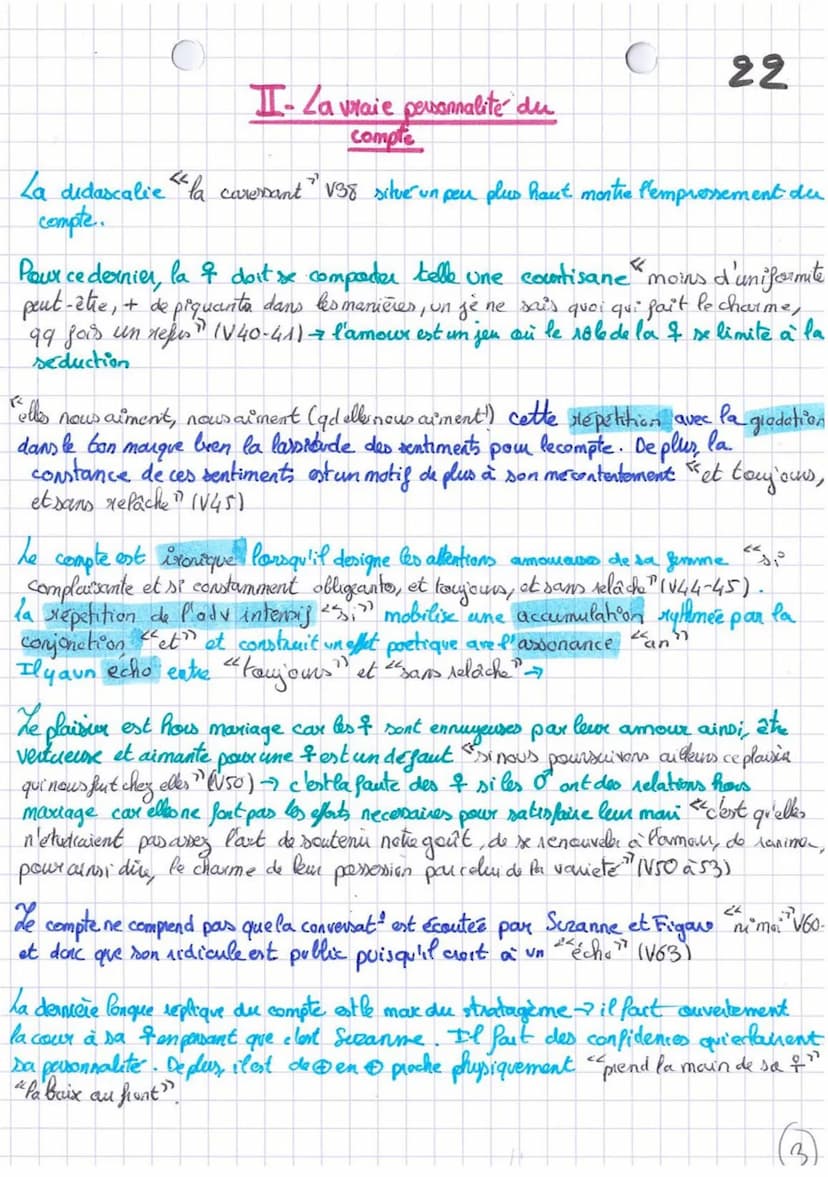 22
II - La vraie personnalité du
compte
La didascalie "la caressant" V38 situé un peu plus haut montre l'empressement du
compte.
Pour ce dernier, la ♀ doit se comporter telle une courtisane "moins d'uniformité
peut-être, + de piquants dans les manières, un je ne sais quoi qui fait le charme,
qq fois un refus" (V40-41) → l'amour est un jeu où le rôle de la ♀ se limite à la
séduction
"elles nous aiment, nous aiment (qd elles nous aiment!) cette répétition avec la gradation
dans le ton marque bien la lassitude des sentiments pour le compte. De plus, la
constance de ces sentiments est un motif de plus à son mécontentement "et toujours,
et sans relâche" (V45)
Le compte est ironique lorsqu'il designe les attentions amoureuses de sa femme "si
complaisante et si constamment obligeantes, et toujours, et sans relâche" (V44-45).
la répétition de l'adv intensif "si" mobilise une accumulation rythmée par la
conjonction "et" et construit un effet poetique avec l'assonance "an"
Il y a un écho entre "toujours" et "sans relâche" →
Le plaisir est hors mariage car les ♀ sont ennuyeuses par leur amour ainsi, être
vertueuse et aimante pour une ♀ est un défaut "si nous poursuivons ailleurs ce plaisir
qui nous fuit chez elles" (V50) → c'est la faute des ♀ si les ♂ ont des relations hors
mariage car elles ne font pas les efforts necessaires pour satisfaire leur mari "c'est qu'elles
n'étudraient pas assez l'art de soutenir notre goût, de se renouveler à l'amour, de ranimer,
pour ainsi dire, le charme de leur possession par celui de la varieté" (V50 à 53)
Le compte ne comprend pas que la conversat° est écoutée par Suzanne et Figaro "ni moi" V60-
et donc que son ridicule est public puisqu'il croit à un "écho" (V63)
La dernière longue replique du compte est le max du stratagème → il fait ouvertement
la cour à sa ♀ en pensant que c'est Suzanne. Il fait des confidences qui eclairent
sa personnalité. De plus, il est de ⊕ en ⊕ proche physiquement "prend la main de sa ♀"
"la baise au front".
3